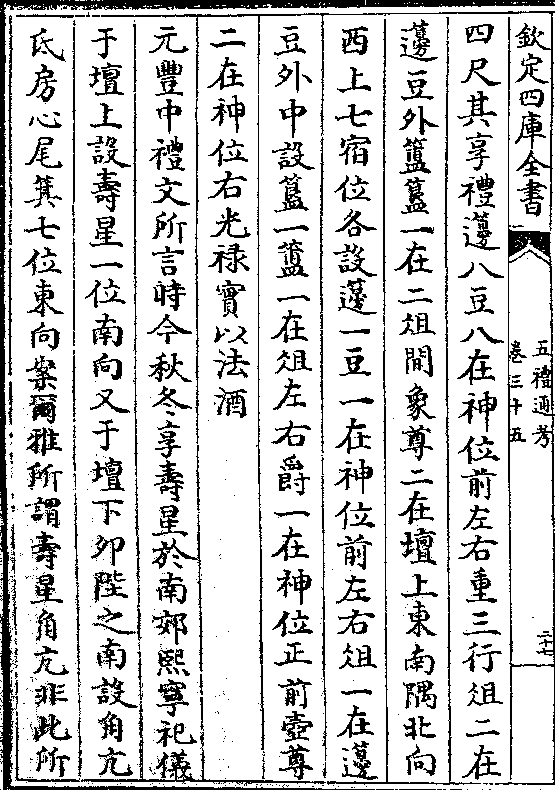 欽定四庫全書
五禮通考
卷三十五
二十七
四尺其享禮籩八豆八在神位前左右重三行俎二在
籩豆外簠簋一在二俎間象尊二在壇上東南隅北向
西上七宿位各設籩一豆一在神位前左右俎一在籩
豆外中設簋一簠一在俎左右爵一在神位正前壺尊
二在神位右光禄實以法酒
元豐中禮文所言時令秋冬享壽星於南郊熙寧祀儀
于壇上設壽星一位南向又于壇下卯陛之南設角亢
氐房心尾箕七位東向案爾雅所謂壽星角亢非此所